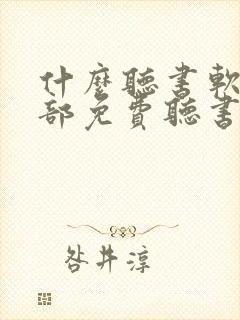 什麼聽書軟
部免費聽書
咎井淳